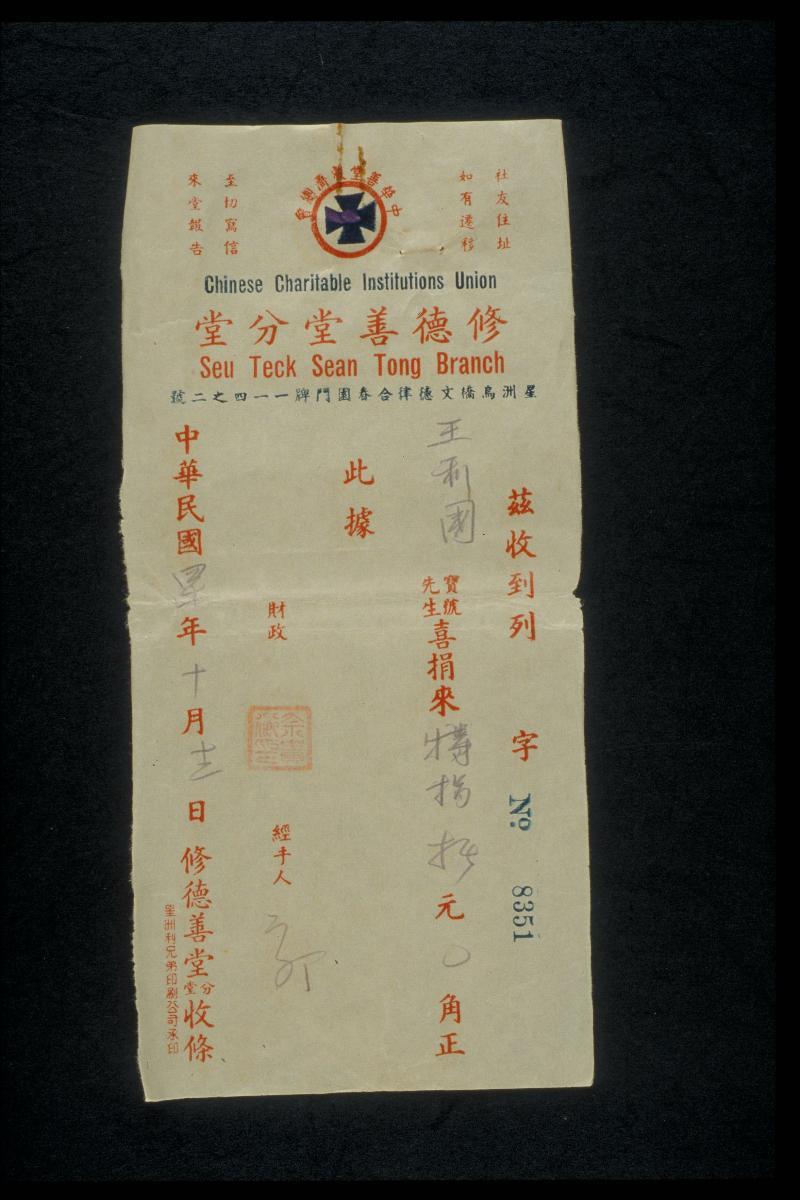 社友住址
如有遷移
至切寫信
來堂報告
中華善堂救濟總會
Chinese Charitable Institutions Union
修德善堂分堂
Seu Teck Sean Tong Branch
星洲烏橋文德律合春園門牌一一四之二號
茲收到列 字 No. 8351
王利國 寶號先生喜捐來 元 〇 角正
此據
財政
經手人
中華民國 年 十 月 日 修德善堂分堂收條
星洲利兄弟印刷公司承印